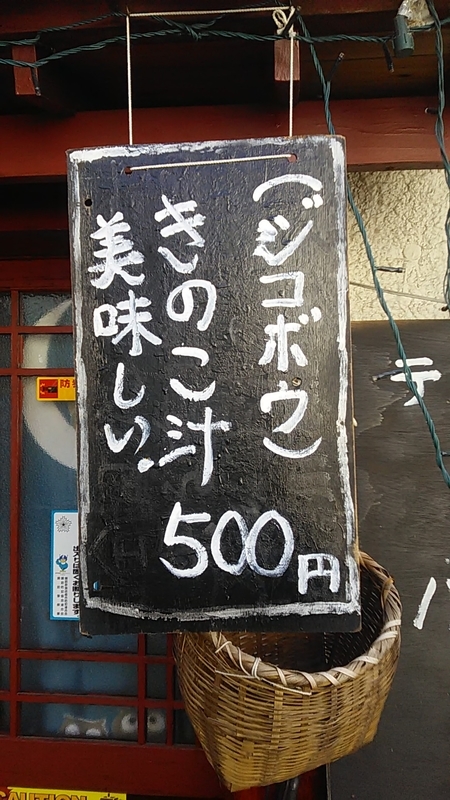 （ジコボウ）
きのこ汁
美味しい。
500円
防
テ
CAUTION